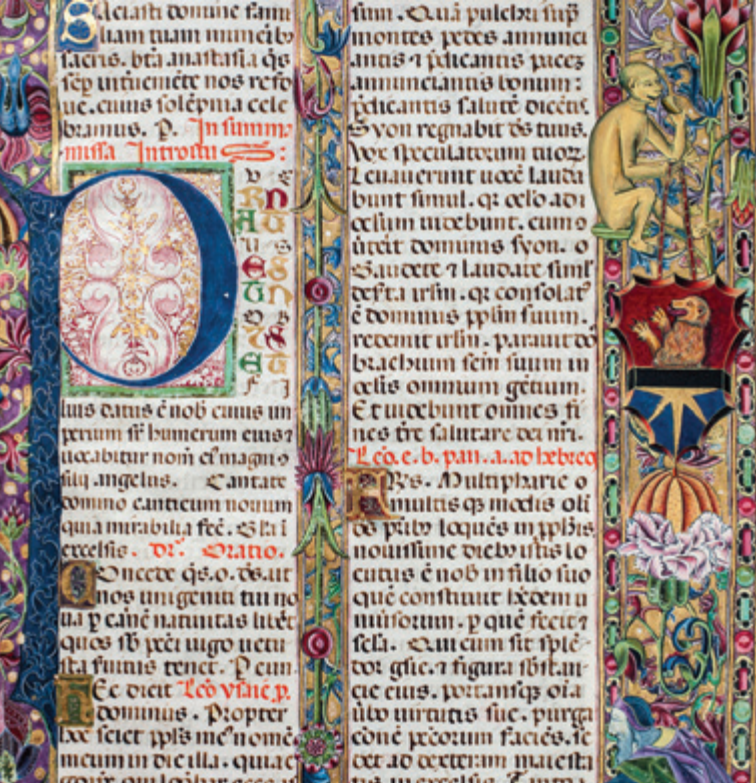 Saciasti domine fami
liam tuam munerib9
sacris. btā anastasia q̄s
sep̄ inťueniēte nos refo
ue. cuius solēpnia cele
bramus. P. In summa
missa Introitus S:
P v e
R n
A t
u s
e S
t n
o b
i s
e t
f i
lius datus ē nob̄ cuius im
perium sr̄ humerum eius ⁊
uocabitur nom̄ ei9 magni 9
silij angelus. Cantate
domino canticum nouum
quia mirabilia fec̄. Gl̄a ī
excelsis. dr̄. Oratio.
Concede q̄s. o. d̄s. ut
nos unigeniti tui no
ua p carnē natiuitas libēt
quos sb̄ pcc̄i iugo uetu
sta ẜuitus tenet. P eun
Hec dicit Lcō ysaie p.
dominus. Propter
hoc sciet ppl̄s me9 nomē
meum in die illa. quia e
suum. Quā pulchri sup
montes pedes annunci
antis ⁊ p̄dicantis pacez
annunciantis bonum:
p̄dicantis salutē dicētis.
Syon regnabit d̄s tuus.
Vox speculatorum tuoꝝ.
Leuauerunt uocē lauda
bunt simul. qr oc̄lo ad i
oc̄lum uidebunt. cum 9
ūterit dominus syon. o
Gaudete ⁊ laudate siml̄
deserta irl̄m. qr consolat9
ē dominus ppl̄m suum.
redemit irl̄m. parauit dō
brachium sc̄m suum in
oc̄lis omnium gētium.
Et uidebunt omnes fi
nes tr̄e salutare dei nr̄i.
Lcō e. b. pau. a. ad hebreos
Frs. Multipharie o
multis q3 modis oli
d̄s p̄ribꝫ loquēs in ppħis
nouissime diebꝫ istis lo
cutus ē nob̄ in filio suo
quē constituit h̄edem u
niuersorum. p quē fecit ⁊
sc̄la. Qui cum sit splē
dor gl̄ie. ⁊ figura sb̄stan
cie eius. portansq3 oīa
ūbo uirtutis sue. purga
cōnē pcc̄orum faciēs. se
det ad dexteram maiesta